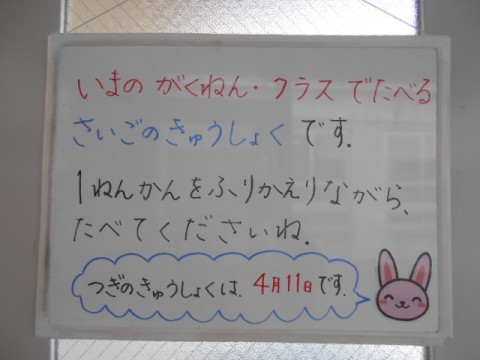 いまの がくねん・クラス でたべる
さいごのきゅうしょく です.
1ねんかんをふりかえりながら、
たべてくださいね.
つぎのきゅうしょくは. 4月11日です.